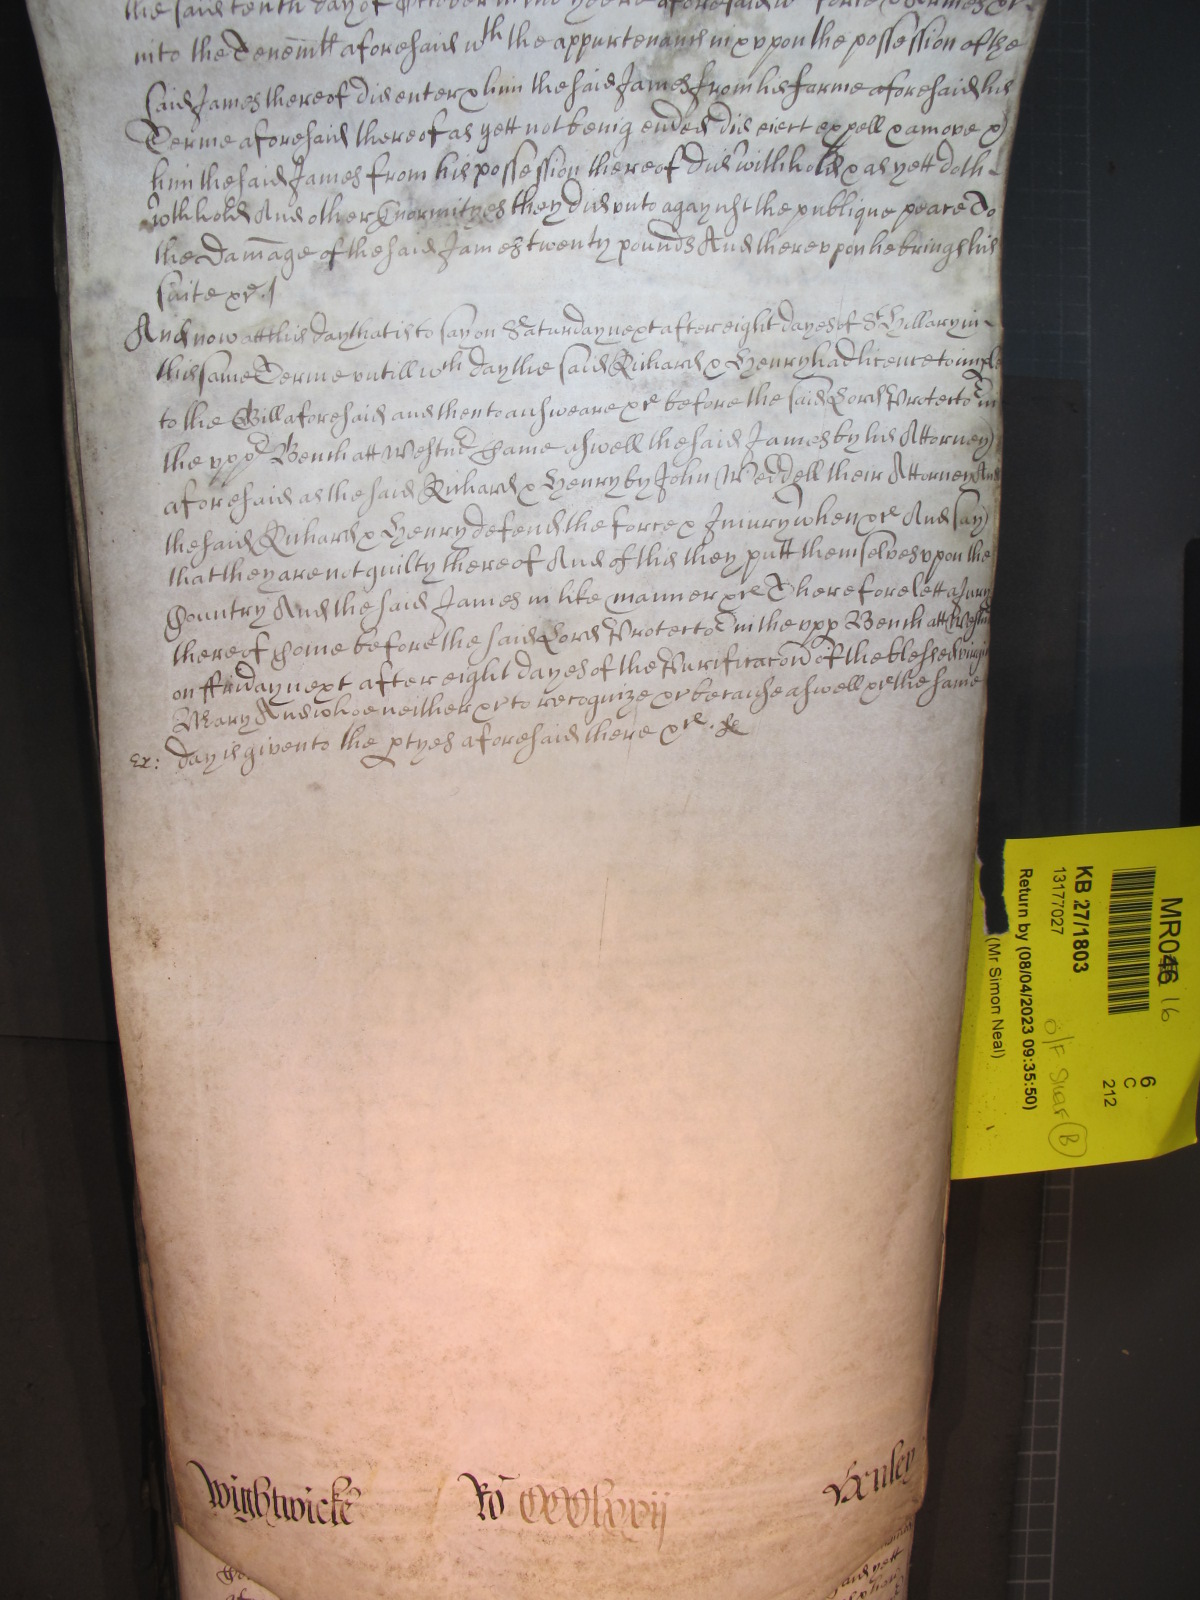 the said tenth day of October in the yeere aforesaid w force & Armes &c
into the Tenemtt aforesaid wth the appurtenances in & vpon the possession of the
said James thereof did enter & him the said James from his farme aforesaid his
Terme aforesaid thereof as yett not being ended did eiect expell & amove &
him the said James from his possession thereof did withhold & as yett doth
wthhold And other Enormityes they did vnto agaynst the publique peace To
the Damage of the said James twenty pounds And therevpon he brings his
suite &c.
And now att this day that is to say on Saturday next after eight dayes of St Hillary in
this same Terme vntill wch day the said Richard & Henry had licence to imple
to the Bill aforesaid and then to answeare &c before the said Lord Protector in
the vpp Bench att Westm Came aswell the said James by his Attorney
aforesaid as the said Richard & Henry by John Weddell their Attorney And
the said Richard & Henry defend the force & Iniury when &c And say
that they are not guilty thereof And of this they putt themselves vpon the
Country And the said James in like manner &c Therefore lett a Jury
thereof Come before the said Lord Protector in the vpp Bench att Westm
on ffriday next after eight dayes of the Purificacon of the blessed virgin
Mary And whoe neither &c to recognize &c because aswell &c the same
Ex: day is given to the ptyes aforesaid there &c.
Wightwicke Ro Henley
MR046 16
KB 27/1803
13177027
Return by (08/04/2023 09:35:50)
(Mr Simon Neal)
6
C
212
O/F
B